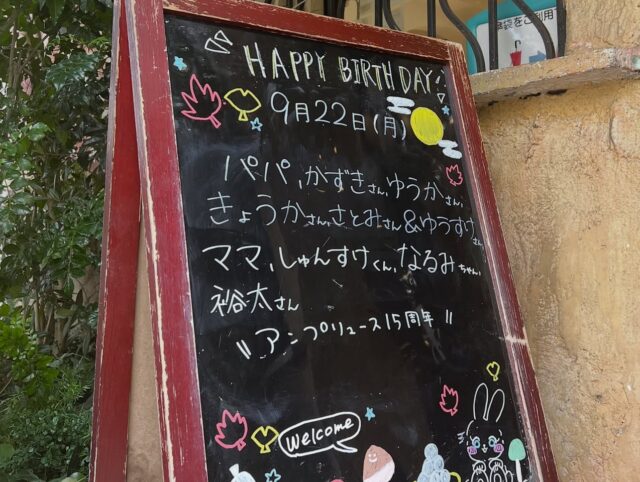 傘袋をご利用
HAPPY BIRTHDAY!
9月22日(月)
パパ、かずきさん、ゆうかさん、
きょうかさん、さとみさん&ゆうすけさん
ママ、しゅんすけくん、なるみちゃん、
裕太さん
\\ アンプリュース15周年 //
Welcome